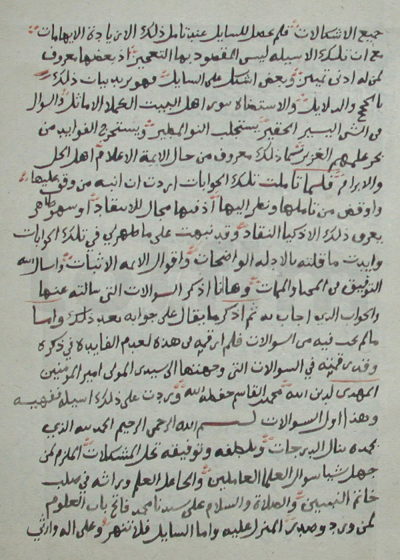 جميع الاشكالات فلم يحصل للسايل عند تامل ذلك الا زيادة الابهامات
مع ان تلك الاسيله ليس المقصود بها التعجيز اذ بعضها معروف
لمن له ادنى تمييز وبعض اشتكل على السايل فهو يريد بيان ذلك
بالحجج والدلايل والاستفاده سوى اهل البيت الكملا الاماثل والسوال
في الشي اليسير الحقير يستجلب النوا المطير ويستخرج الفوايد من
بحر علمهم الغزير كما ذلك معروف من حال الايمة الاعلام اهل الحل
والابرام فلما تاملت تلك الجوابات اردت ان انبه من وقف عليها
واوقظ من تاملها ونظر اليها اذ فيها مجال للانتقاد وسهو ظاهر
يعرف ذلك الاذكيا النقاد وقد نبهت على ما ظهر لي في تلك الجوابات
وايدت ما قلته بالادله الواضحات واقوال الايمه الاثبات واسال الله
التوفيق في المحيا والممات وها انا اذكر السوالات التي سالته عنها
والجواب الذي اجاب به ثم اذكر ما يقال على جوابه بعد ذلك واما
ما لم يجب فيه من السوالات فلم ارقمه في هذه لعدم الفايده في ذكره
وقد رقمته في السوالات التي وجهتها الى سيدي المولى امير المومنين
المهدي لدين الله محمد بن القاسم حفظه الله وزدت على ذلك اسيلة فقهيه
وهذا اول السوالات بسم الله الرحمن الرحيم الحمد لله الذي
بحمده تنال الدرجات وبلطفه وتوفيقه تحل المشكلات الملزم لمن
جهل شيا سوال العلما العاملين والجاعل العلم وراثه في صلب
خاتم النبيين والصلاة والسلام على سيدنا محمد فاتح باب العلوم
لمن ورد وصدر المنزل عليه واما السايل فلا تنهر وعلى اله وارثي